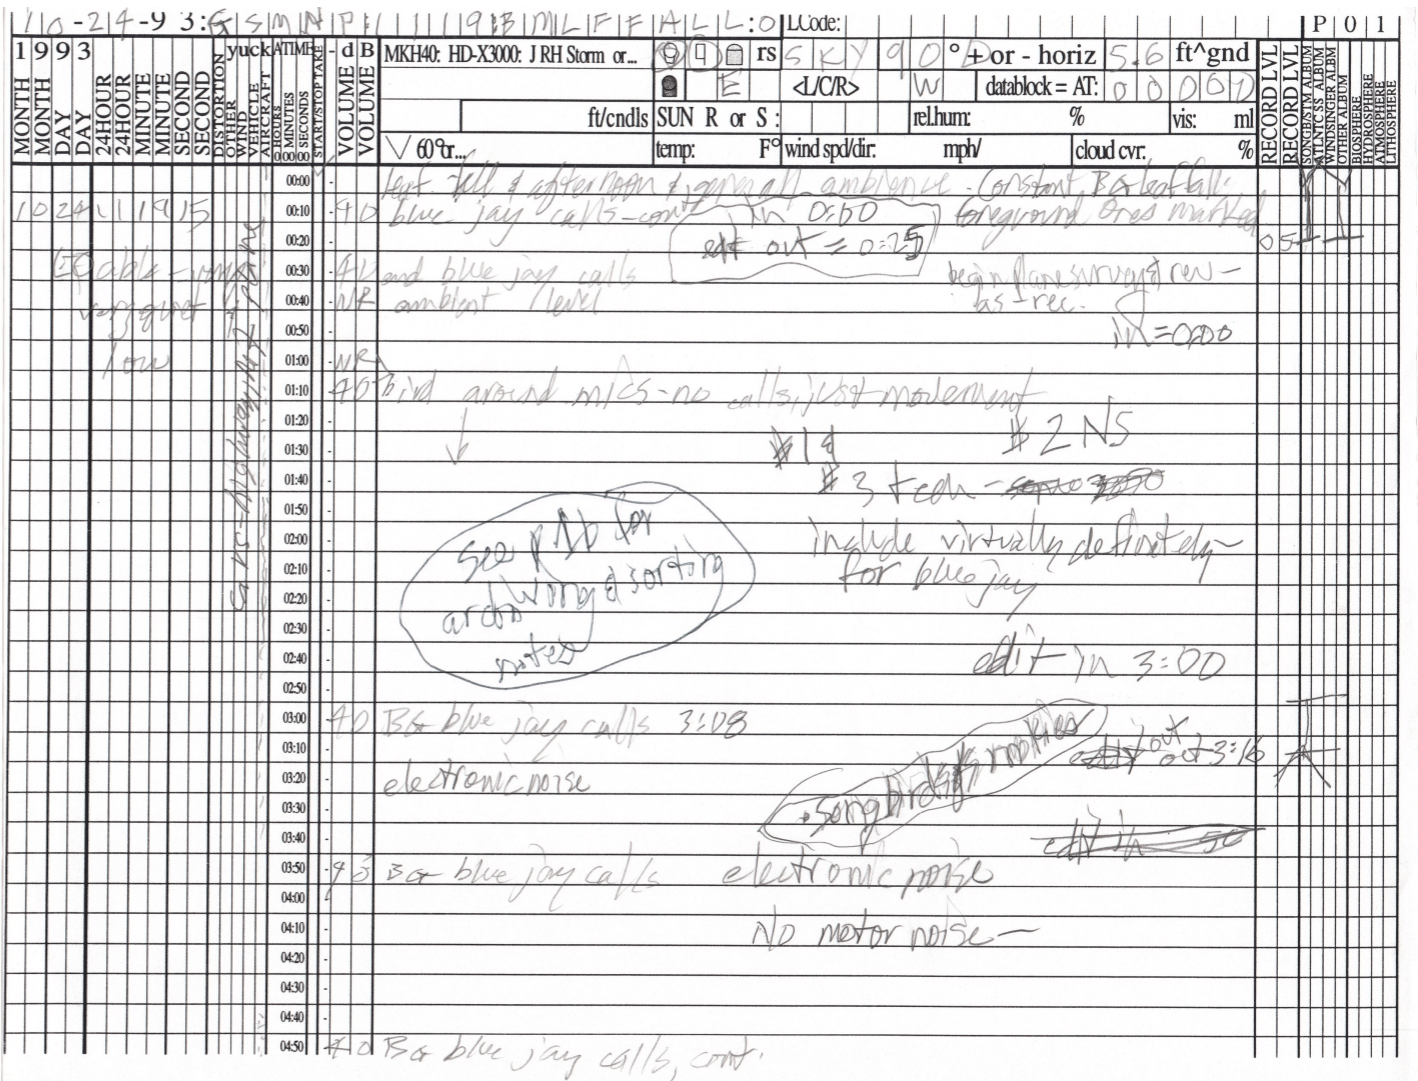 10-24-93:GSMNP:1119:BMLFFALL:0 LCode: P01
1993 yuck ATIME - d B MKH40: HD-X3000: J RH Storm or... rs SKY 90° + or - horiz 5.6 ft^gnd
MONTH MONTH DAY DAY 24HOUR 24HOUR MINUTE MINUTE SECOND SECOND DISTORTION OTHER WIND VEHICLE AIRCRAFT HOURS MINUTES SECONDS START/STOP TAKE VOLUME VOLUME
E <L/C/R> W datablock = AT: 00000
RECORD LVL RECORD LVL SONGB/STM ALBUM ATLNTC SS ALBUM WINDSINGER ALBM OTHER ALBUM BIOSPHERE HYDROSPHERE ATMOSPHERE LITHOSPHERE
ft/cndls SUN R or S : rel.hum: % vis: ml
60°r... temp: F° wind spd/dir. mph/ cloud cvr. %
00:00 leaf fall & afternoon & general ambience - Constant BG leaf fall
1024111915 00:10 40 blue jay calls-cont in 0:00 foreground ones marked
00:20 edit out = 0:25 05
00:30 40 and blue jay calls begin plane survey & rev-
very quiet 00:40 NR ambient level as-rec.
00:50 in=0:00
low 01:00 NR
01:10 40 bird around mics-no calls, just movement
01:20 $2 NS
01:30 $1
01:40 $3 tech -
01:50
02:00 See p1b for include virtually, definitely-
02:10 archiving & sorting for blue jay
02:20 notes
02:30
02:40 edit in 3:00
02:50
03:00 40 BG blue jay calls 3:08
03:10 out 3:16
03:20 electronic noise songbirds
03:30
03:40 edit in
03:50 43 BG blue jay calls electronic noise
04:00
04:10 No motor noise-
04:20
04:30
04:40
04:50 40 BG blue jay calls, cont.
cars-highway